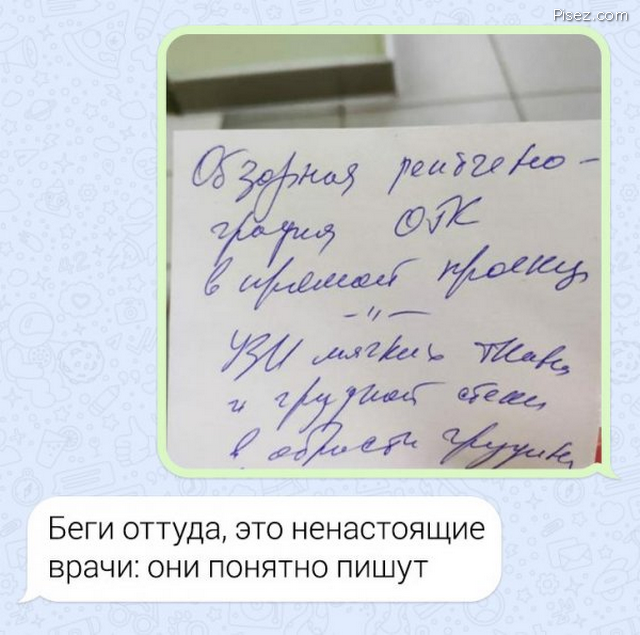 Pisez.com
Обзорная рентгено-
графия ОГК
в прямой проекц
-"-
УЗИ мягких ткан
и грудной стенки
в области грудин
Беги оттуда, это ненастоящие
врачи: они понятно пишут